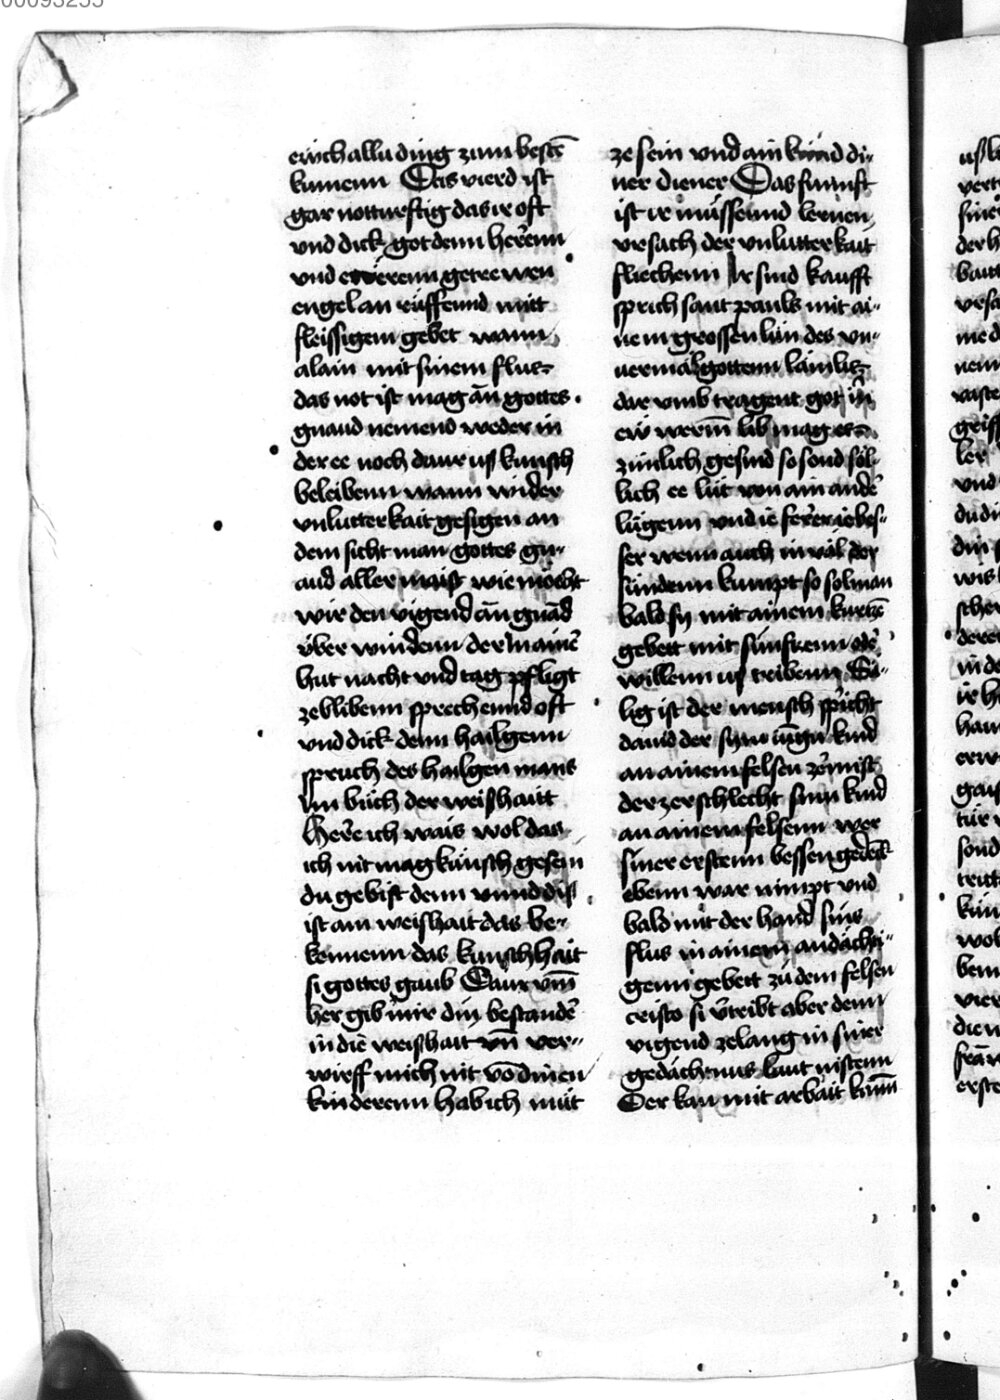 00093255
ewch allu ding zum bestē
kumenn Das vierd ist
gar notturftig das ir oft
vnd dick got denn herrenn
vnd ewerenn getrewen
engel an rüffennd mitt
fleissigem gebet wann
alain mit sinem flus
das not ist mag ān gottes
gnaud niemend weder in
der ee noch daur us künsch
beleibenn wann wider
vnlutterkait gesigen an
dem sicht man gottes gn-
aud aller maist wie möcht
wir den vigend ān gnād
über windenn der in ainē
hut nacht vnd tag pfligt
ze blibenn sprechennd oft
vnd dick denn hailgenn
spruch des hailgen mans
im büch der weishaitt
Here ich wais wol das
ich nit mag künsch gesein
du gebist denn vnnd dis
ist ain weishait das be-
kennenn das künschhait
si gottes gaub Daur vm̄
her gib mir din bestandē
in die weishait vn̄ ver-
wirff mich nit vō dinen
kinderenn hab ich mitt
ze sein vnd ain kind di-
ner diener Das fünnft
ist ir müssennd lernen
vrsach der vnlutterkait
fliechenn Ir sind kaufft
sprich sant pauls mit ai-
nem grossen lün des vn-
vermalgottenn lamlis
dar vmb tragent got in
ew werm̄ lib mag es
zimlich gesind so sond söl-
lich ee lüt von ain andē
lügenn vnd ie ferer ie bes-
ser wenn auch in väl der
sündenn kumpt so sol man
bald sy mit ainem kurtzē
gebett mit sünfzenn oder
willenn us tribenn Sä-
lig ist der mensch spricht
dauid der syni iungu kind
an ainem felsen zernist
der zerschlecht sinu kind
an ainem felsenn wer
siner erstenn bessen gedenk
ebenn war nimpt vnd
bald mit der hand sins
flus in ainem andächti-
genn gebett zü dem felsen
cristo si v̄tribt aber denn
vigend ze lang in siner
gedächtnus laut nistenn
Der kan mit arbait kumm̄